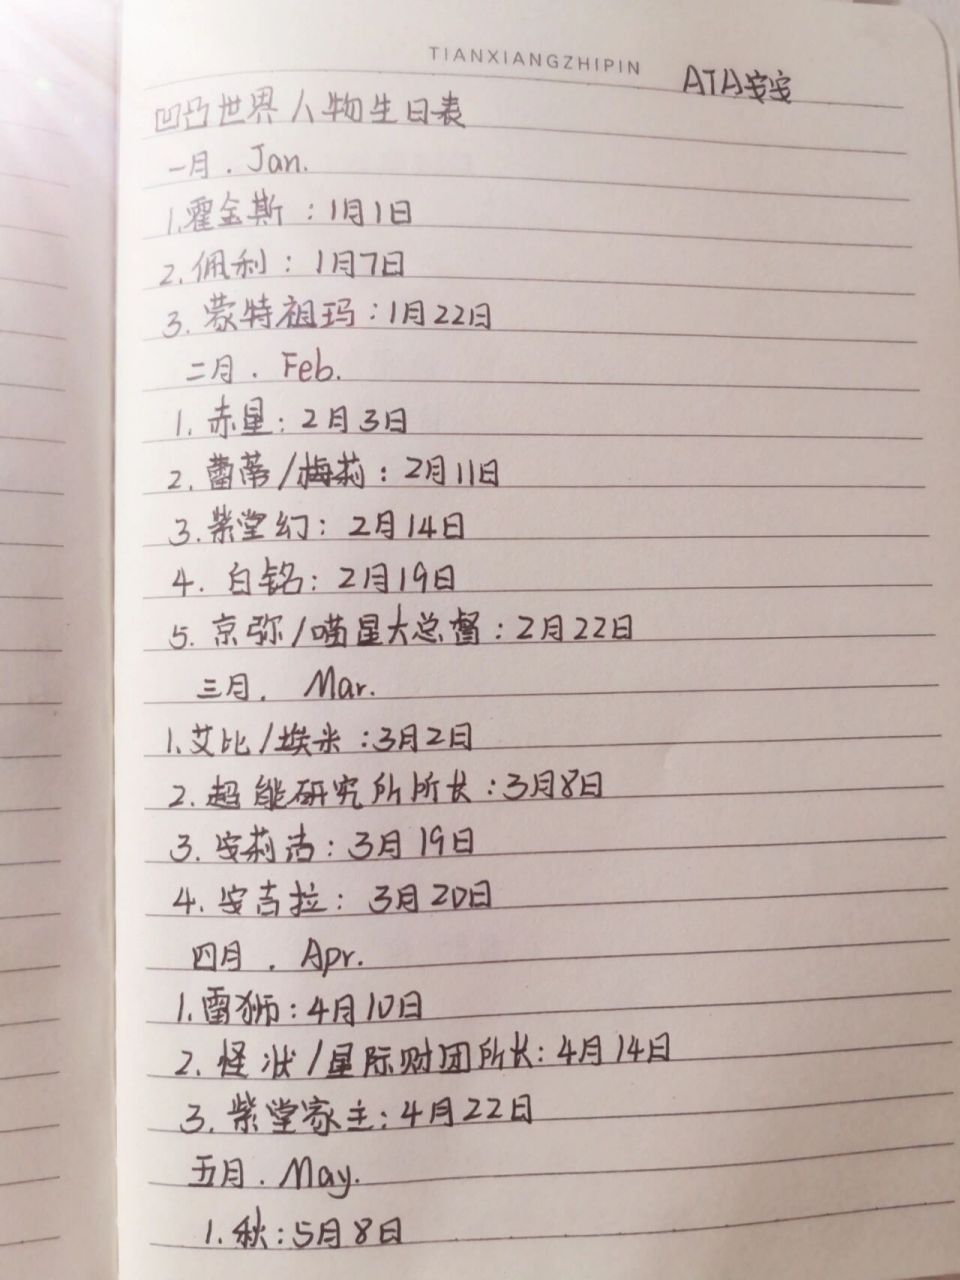 TIANXIANGZHIPIN
ATA安安
凹凸世界人物生日表
一月．Jan.
1.霍金斯：1月1日
2.佩利：1月7日
3.蒙特祖玛：1月22日
二月．Feb.
1.赤星：2月3日
2.蕾蒂/梅莉：2月11日
3.紫堂幻：2月14日
4.白铭：2月19日
5.京弥/喵星大总督：2月22日
三月．Mar.
1.艾比/埃米：3月2日
2.超能研究所所长：3月8日
3.安莉洁：3月19日
4.安吉拉：3月20日
四月．Apr.
1.雷狮：4月10日
2.怪状/星际财团所长：4月14日
3.紫堂家主：4月22日
五月．May.
1.秋：5月8日